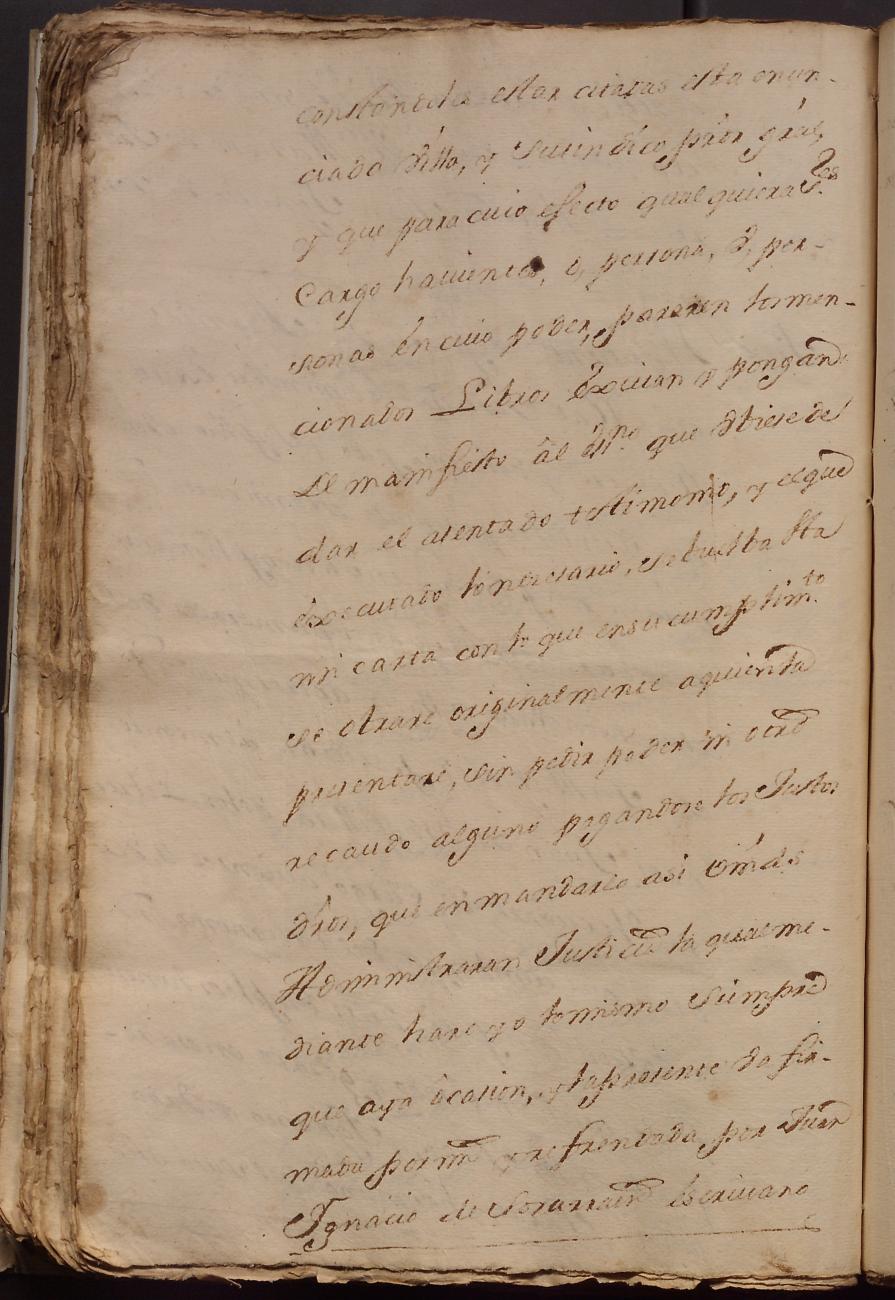 constandoles estar citados esta enun-
ciada Villa, y su sindico pror gral,
y que para cuio efecto qualquiera Ess.
Cargo havientes, o, persona, o, per-
sonas en cuio poder, pararen los men-
cionados Libros exivan y pongan de
Le manifiesto al Essno que Vbiese de
dar el atentado testimonio, y el que
executado lo necesario, se buelba Sta
mi carta con lo que en su cumplimto
se obrare originalmente a quien la
presentare, sin pedir poder ni otro
recaudo alguno pagandose los Justos
dros, que en mandarlo asi Vmds
Administraran Justicia la qual me-
diante hare yo lo mismo siempre
que aya ocasion, y la presente da fir-
mada por mi y refrendada, por Juan
Ygnacio de Sorarrain Escrivano